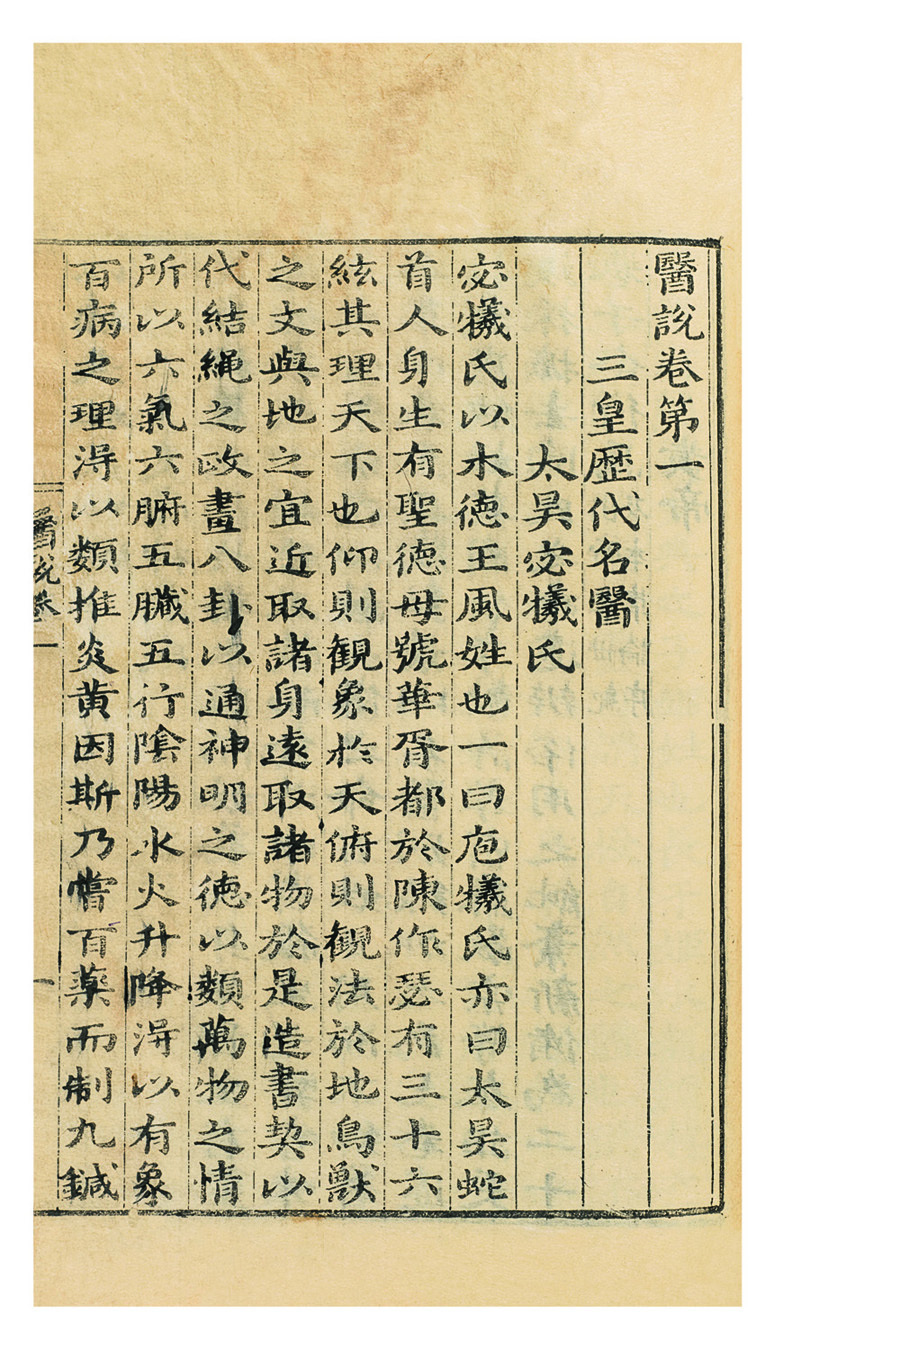 醫說卷第一
三皇歷代名醫
太昊宓犧氏
宓犧氏以木德王風姓也一曰庖犧氏亦曰太昊蛇
首人身生有聖德母號華胥都於陳作瑟有三十六
絃其理天下也仰則觀象於天俯則觀法於地鳥獸
之文與地之宜近取諸身遠取諸物於是造書契以
代結繩之政畫八卦以通神明之德以類萬物之情
所以六氣六腑五臟五行陰陽水火升降得以有象
百病之理得以類推炎黃因斯乃嘗百藥而制九鍼
醫說卷一
一